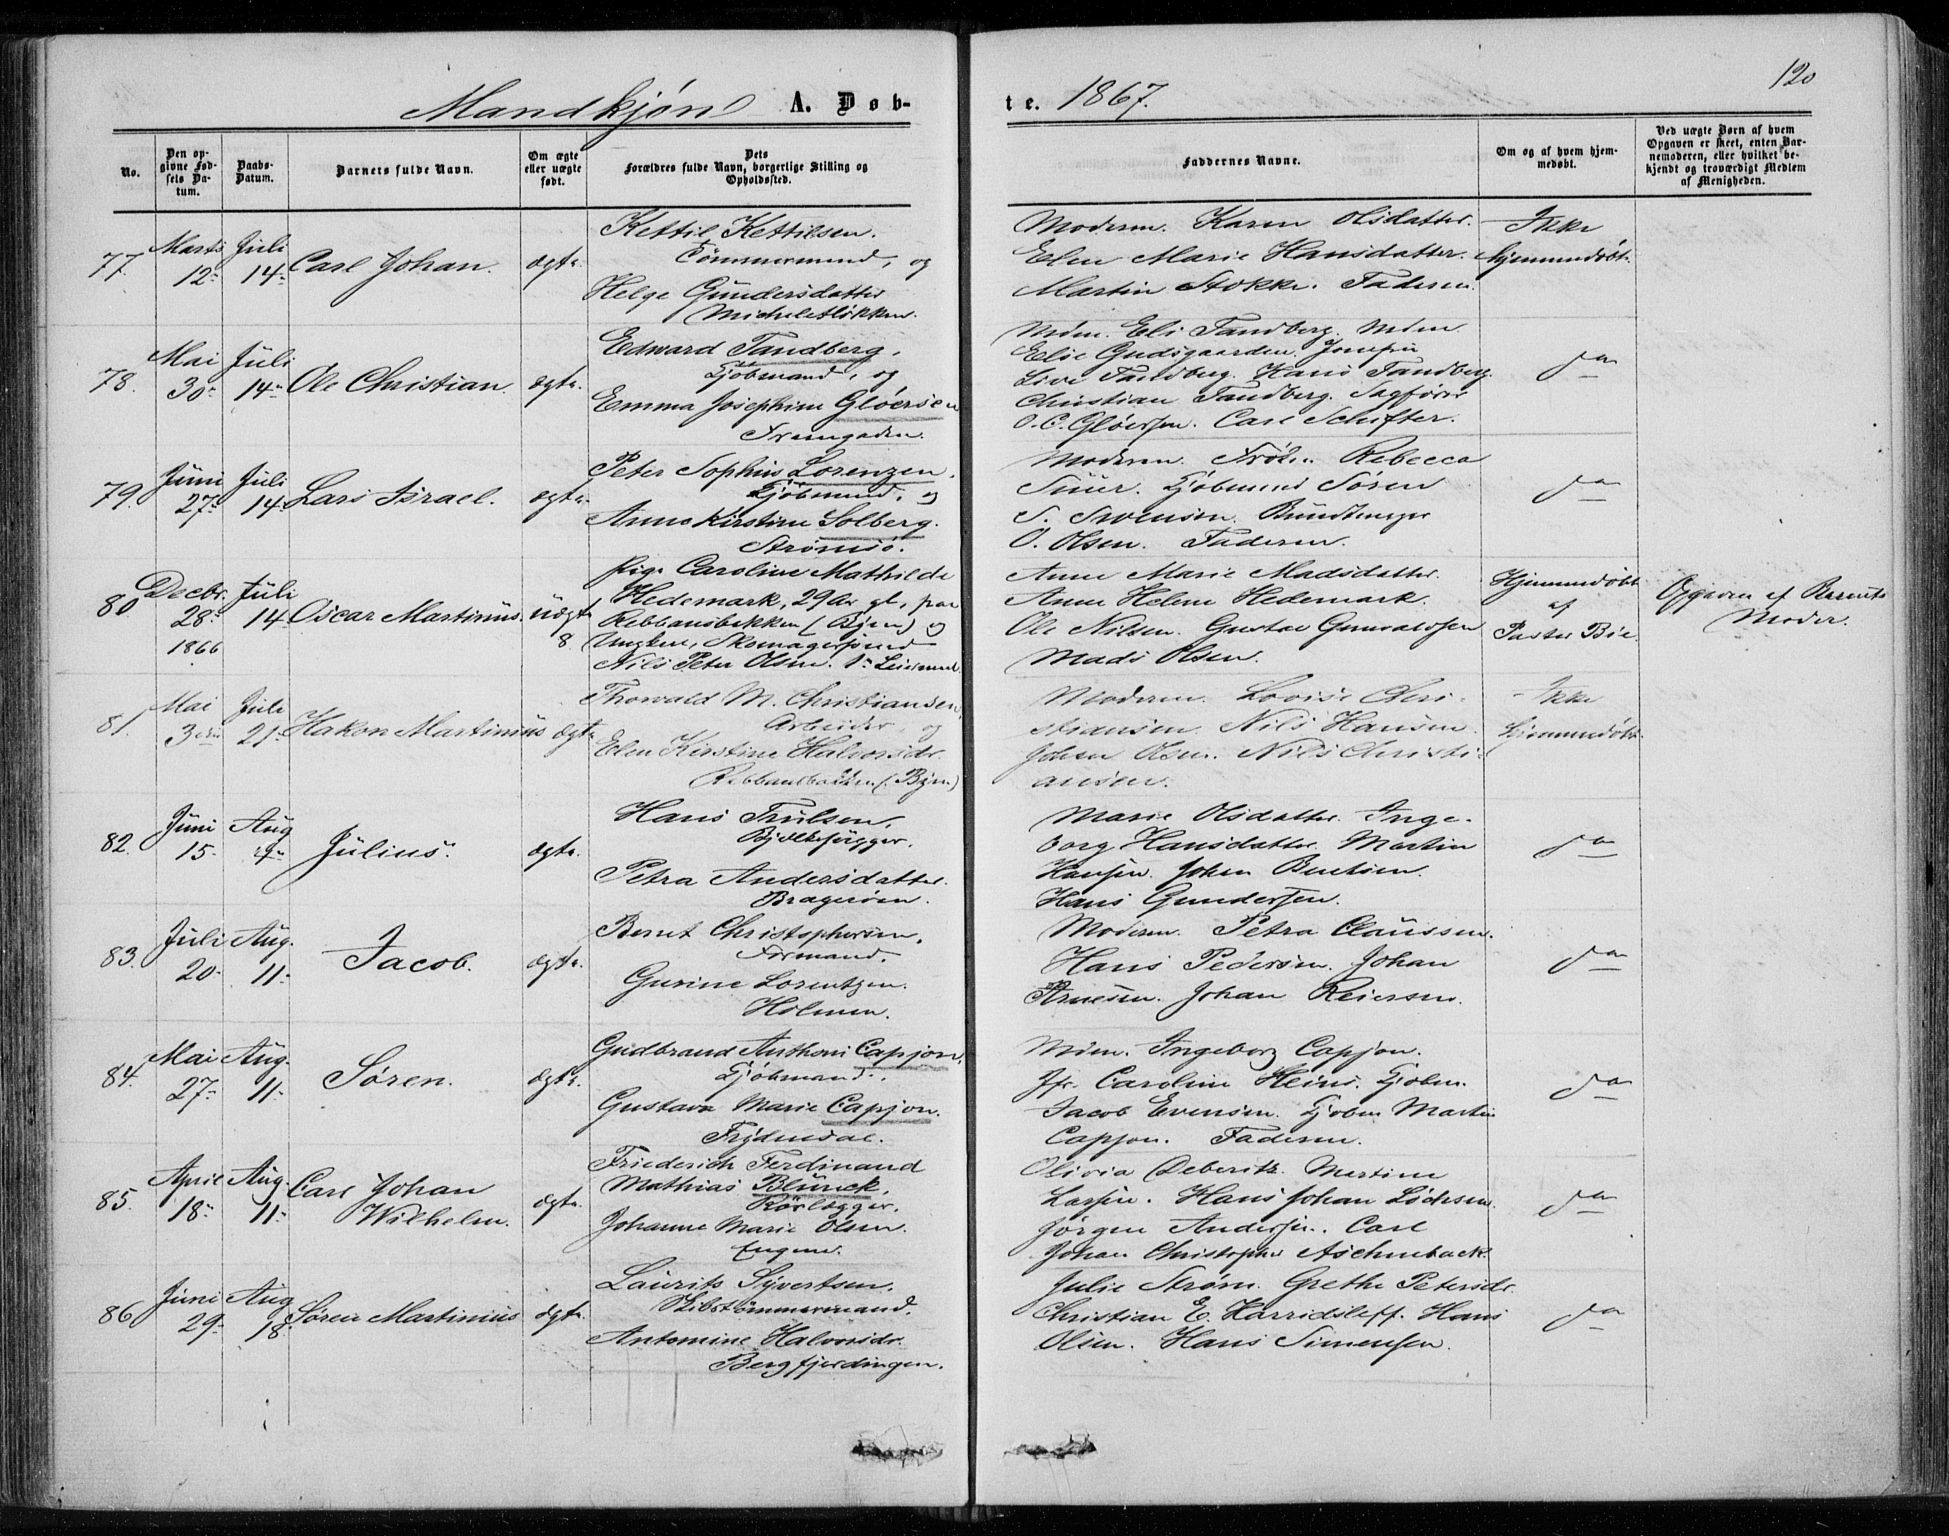 120
Mandkjøn A. Døb-
te. 1867.
No.
Den op-
givne Fød-
sels Da-
tum.
Daabs-
Datum.
Barnets fulde Navn.
Om ægte
eller uægte
født.
Dets
Forældres fulde Navn, borgerlige Stilling og
Opholdssted.
Faddernes Navne.
Om og af hvem hjem-
medøbt.
Ved uægte Børn af hvem
Opgaven er skeet, enten Bar-
nemoderen, eller hvilket be-
kjendt og troværdigt Medlem
af Menigheden.
77.
Marts
12-
Juli
14-
Carl Johan.
ægte.
Kettil Kettilsen.
Tømmermand, og
Helge Gundersdatter
Micheletløkken.
Moderen. Karen Olsdatter.
Elen Marie Hansdatter.
Martin Stokke. Faderen.
Ikke
hjemmedøbt.
78.
Mai
30-
Juli
14-
Ole Christian.
ægte.
Edward Tandberg,
Kjøbmand, og
Emma Josephine Gløersen
Tramgaden.
Mdm. Eli Tandberg. Mdm
Elise Gudsgaarden. Jomfru
Live Tandberg. Hans Tandberg.
Christian Tandberg. Sagfører
O. C. Gløersen. Carl Schifter.
do
79.
Juni
27-
Juli
14-
Lars Israel.
ægte.
Peter Sophus Lorenzen,
Kjøbmand, og
Anne Kirstine Solberg.
Strømsø.
Moderen. Frøken Rebecca
Kjøbmand Søren
S. Svensen. Bundtmager
O. Olsen. Faderen.
do
80
Decbr.
28-
1866
Juli
14-
Oscar Martinius.
uægte
8
Pige Caroline Mathilde
Hedemark, 29 Aar gl., paa
Rebbansbakken (Byen) og
Ungkarl, Skomagersvend
Nils Peter Olsen. 1ste Leiermaal
Anne Marie Madsdatter.
Anne Helene Hedemark.
Ole Nilsen. Gustav Gunvaldsen
Mads Olsen.
Hjemmedøbt
af
Pastor Bøe
Opgaven af Barnets
Moder.
81.
Mai
3die
Juli
21-
Hakon Martinius
ægte
Thorvald M. Christiansen,
Arbeider, og
Elen Kirstine Halvorsdr.
Rebbansbakken (Byen)
Moderen. Lovise Chri-
stiansen. Nils Hansen
Johan Olsen. Nils Christi-
ansen.
Ikke
hjemmedøbt
82.
Juni
15-
Aug
4-
Julius.
ægte.
Hans Trulsen,
Bjelkehugger.
Petra Andersdatter.
Bragerøen.
Marie Olsdatter. Inge-
borg Hansdatter. Martin
Hansen. Johan Bentsen.
Hans Gundersen.
do
83.
Juli
20-
Aug.
11-
Jacob.
ægte.
Bernt Christophersen,
Formand.
Gurine Lorentzen.
Holmen.
Moderen. Petra Claussen.
Hans Pedersen. Johan
Arnesen. Johan Reiersen.
do
84.
Mai
27-
Aug.
11-
Søren.
ægte.
Gudbrand Anthoni Capjon,
Kjøbmand.
Gustava Marie Capjon.
Frydendal.
Mdm. Ingeborg Capjon.
Jfr. Caroline Heins. Kjøbm.
Jacob Evensen. Kjøbm Martin
Capjon. Faderen.
do
85.
April
18-
Aug.
11-
Carl Johan
Wilhelm.
ægte.
Friederich Ferdinand
Mathias Blunck,
Rørlægger.
Johanne Marie Olsen.
Engene.
Olivia Deberitz. Martine
Larsen. Hans Johan
Jørgen Andersen. Carl
Johan Christopher Aschenback.
do
86.
Juni
29-
Aug
18-
Søren Martinius
ægte.
Laurits Syvertsen,
Skibstømmermand.
Antomine Halvorsdr.
Bergfjerdingen.
Julie Strøm. Grethe Petersdr.
Christian E. Harridsleff. Hans
Olsen. Hans Simensen.
do